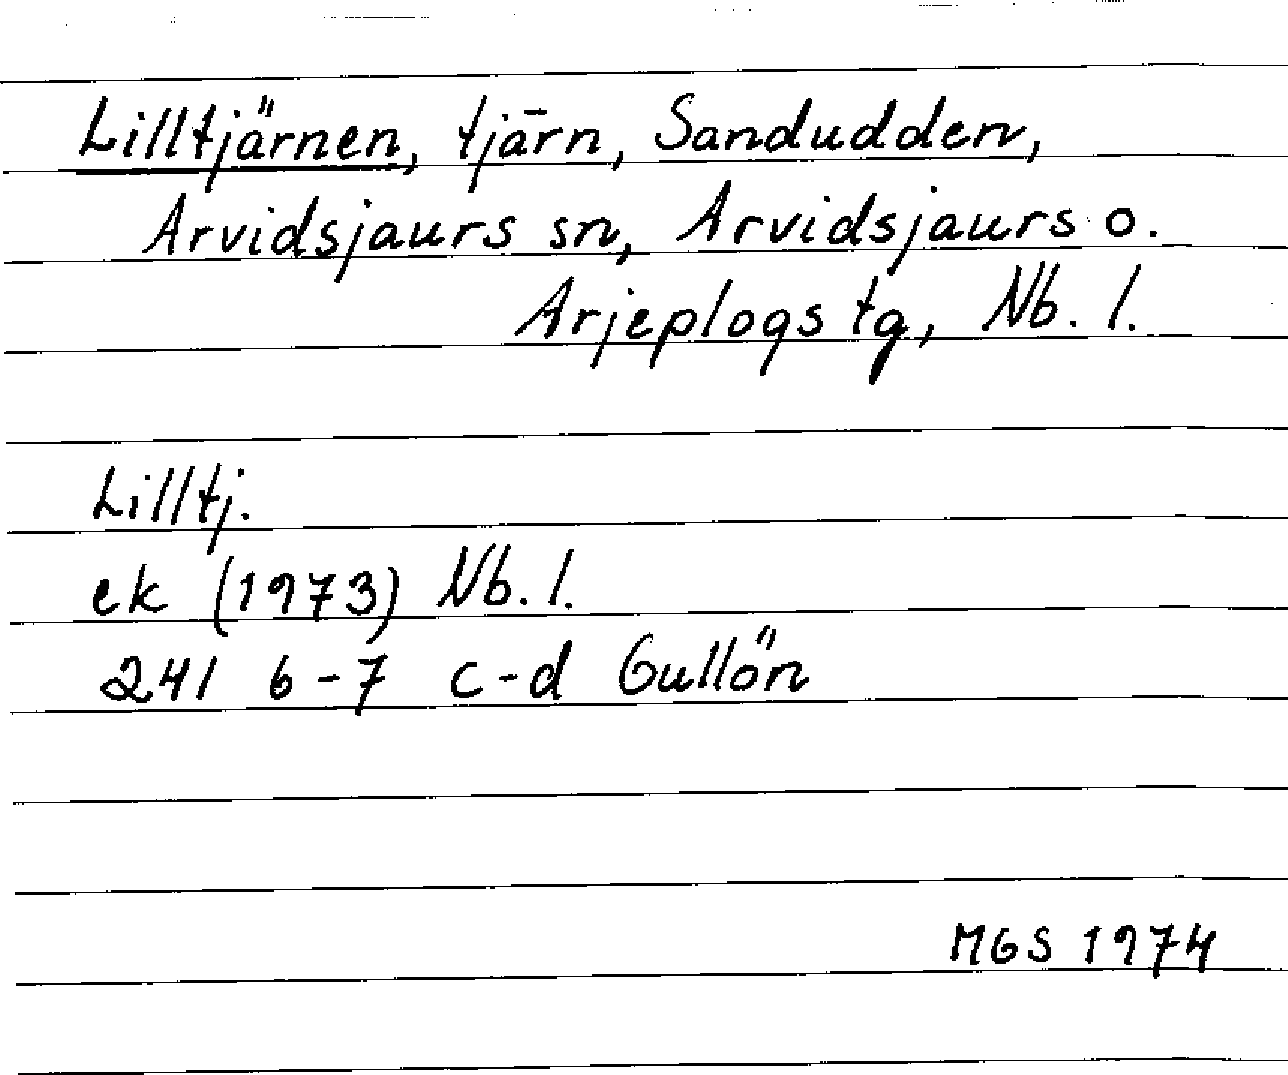 Lilltjärnen, tjärn, Sandudden,
Arvidsjaurs sn, Arvidsjaurs o.
Arjeplogs tg, Nb. l.
Lilltj.
ek (1973) Nb. l.
241 6-7 c-d Gullön
MGS 1974